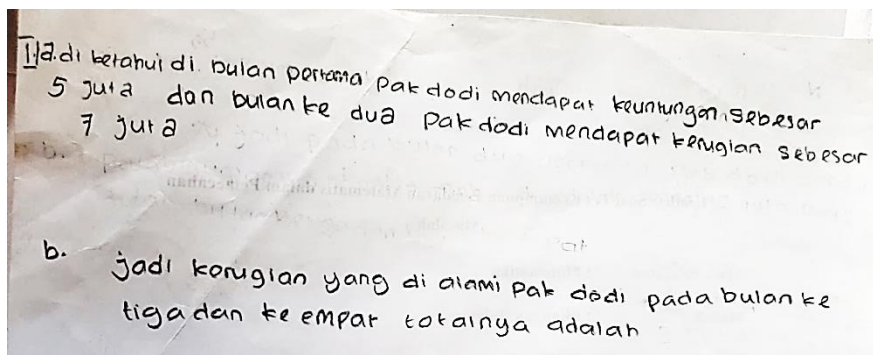 1.a. di ketahui di bulan pertama pak dodi mendapat keuntungan sebesar
5 juta dan bulan ke dua pak dodi mendapat kerugian sebesar
7 juta
b. jadi korugian yang di alami pak dodi pada bulan ke
tiga dan ke empat totalnya adalah